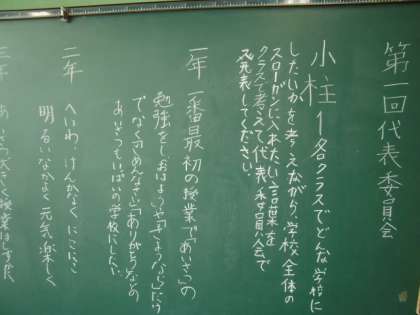 第一回代表委員会
小柱1 各クラスでどんな学校に
したいかを考えながら、学校全体の
スローガンに入れたい言葉を
クラスで考えて、代表委員会で
発表してください。
一年 一番最初の授業で「あいさつ」の
勉強をし「おはよう」や「さようなら」だけ
でなく「ごめんなさい」「ありがとう」などの
あいさつでいっぱいの学校にしたい。
二年 へいわ、けんかなく、にこにこ
明るい なかよく 元気 楽しく
三年